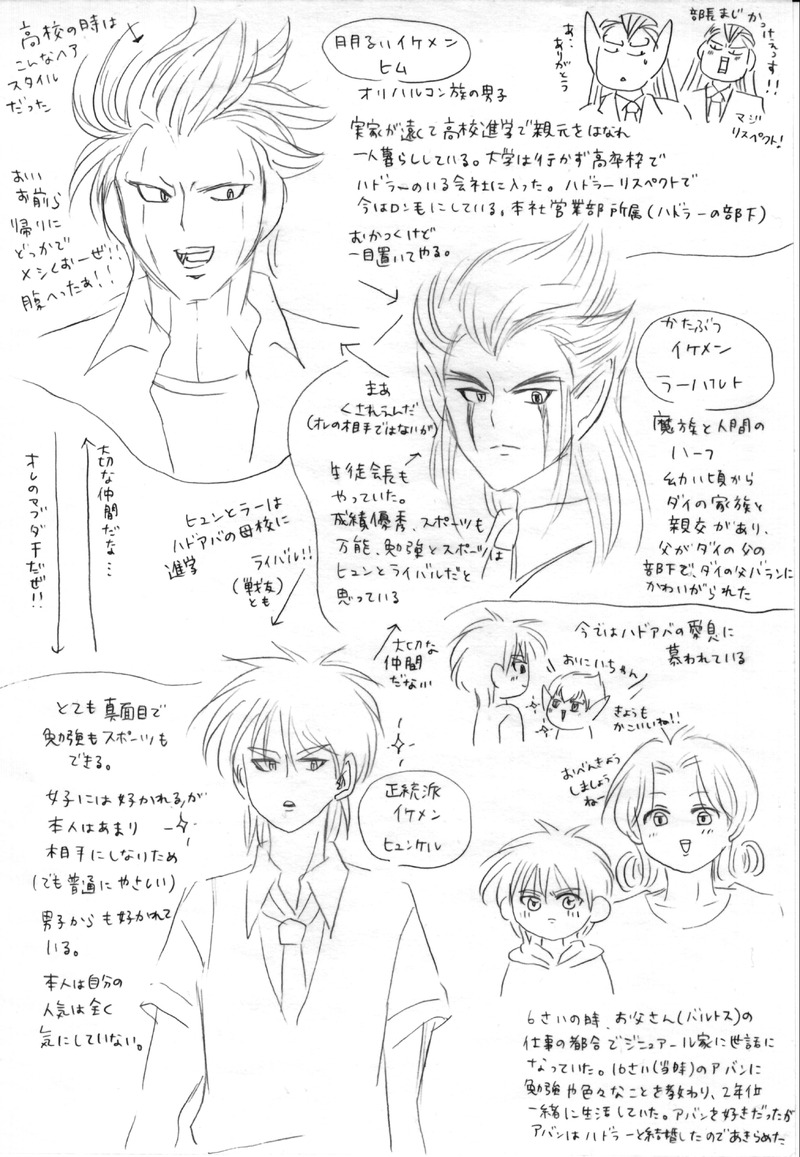 高校の時は
こんなヘア
スタイル
だった
明るいイケメン
ヒム
オリハルコン族の男子
実家が遠くて高校進学で親元をはなれ
一人暮らししている。大学は行かず高卒枠で
ハドラーのいる会社に入った。ハドラーリスペクトで
今はロン毛にしている。本社営業部所属(ハドラーの部下)
あ…
ありがとう
部長まじかっけぇっす!!
マジ
リスペクト!
おい
お前ら
帰りに
どっかで
メシくおーぜ!!
腹へったぁ!!
むかつくけど
一目置いてやる。
まあ
くされえんだ
(オレの相手ではないが)
かたぶつ
イケメン
ラーハルト
魔族と人間の
ハーフ
幼い頃から
ダイの家族と
親交があり、
父がダイの父の
部下で、ダイの父バランに
かわいがられた
生徒会長も
やっていた。
成績優秀、スポーツも
万能、勉強とスポーツは
ヒュンとライバルだと
思っている
オレのマブダチだぜ!!
大切な仲間だな…
ヒュンとラーは
ハドアバの母校に
進学
ライバル!!
(戦友)
とも
大切な
仲間
だな…
今ではハドアバの愛息に
慕われている
おにいちゃん
きょうも
かこいいね!!
とても真面目で
勉強もスポーツも
できる。
女子には好かれるが
本人はあまり
相手にしないため
(でも普通にやさしい)
男子からも好かれて
いる。
本人は自分の
人気は全く
気にしていない。
正統派
イケメン
ヒュンケル
おべんきょう
しましょう
ねー
6さいの時、お父さん(バルトス)の
仕事の都合でジニュアール家に世話に
なっていた。16さい(当時)のアバンに
勉強や色々なことを教わり、2年位
一緒に生活していた。アバンを好きだったが
アバンはハドラーと結婚したのであきらめた